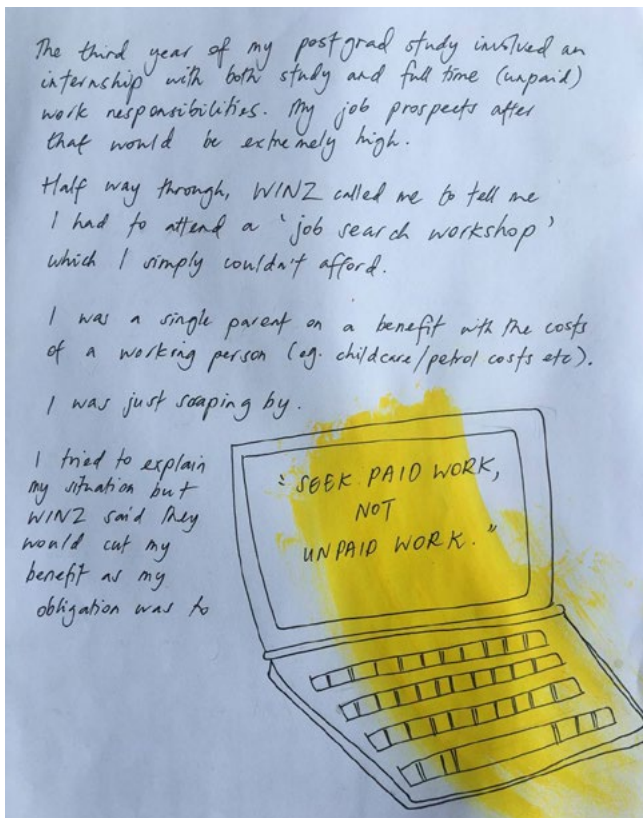 The third year of my postgrad study involved an
internship with both study and full time (unpaid)
work responsibilities. My job prospects after
that would be extremely high.
Half way through, WINZ called me to tell me
I had to attend a 'job search workshop'
which I simply couldn't afford.
I was a single parent on a benefit with the costs
of a working person (eg. childcare/petrol costs etc).
I was just scaping by.
I tried to explain
my situation but
WINZ said they
would cut my
benefit as my
obligation was to
"SEEK PAID WORK,
NOT
UNPAID WORK."